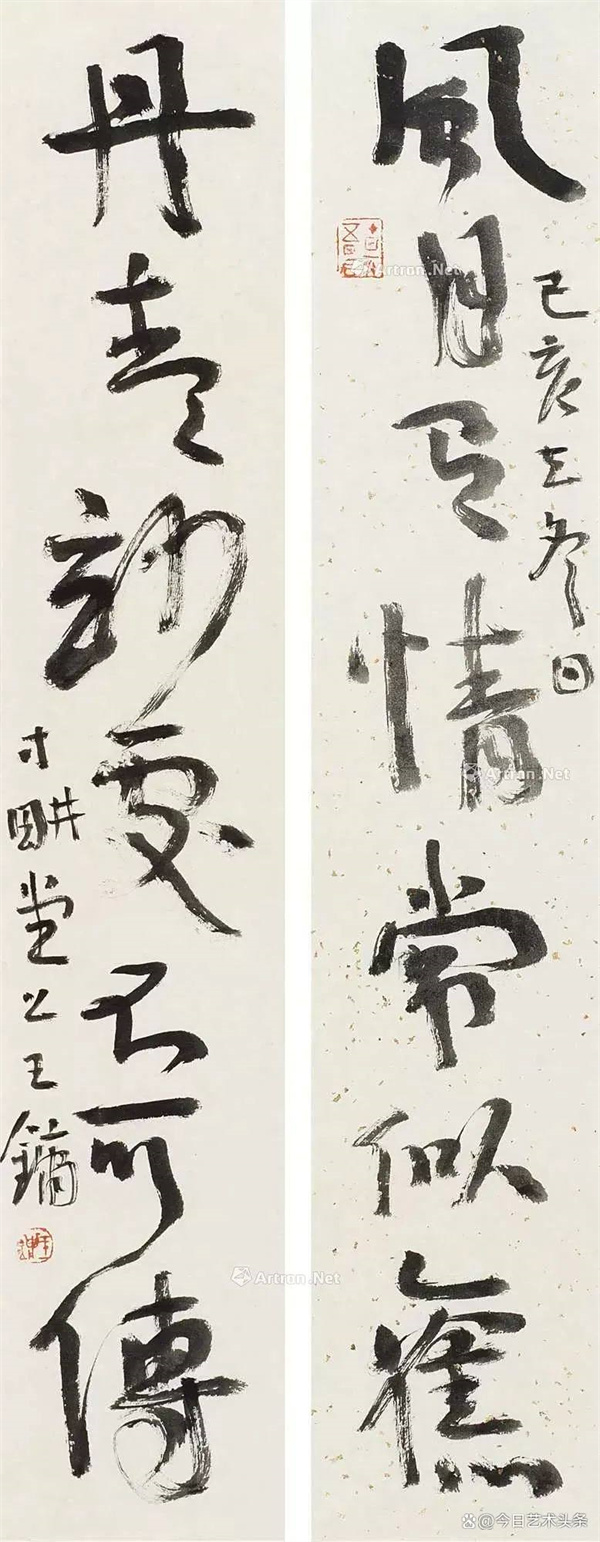 風月有情常似舊
己亥立冬日
丹青妙處不可傳
寸畊堂王鏞
Artron.Net
Artron.Net
Artron.Net
Artron.Net
@今日艺术头条